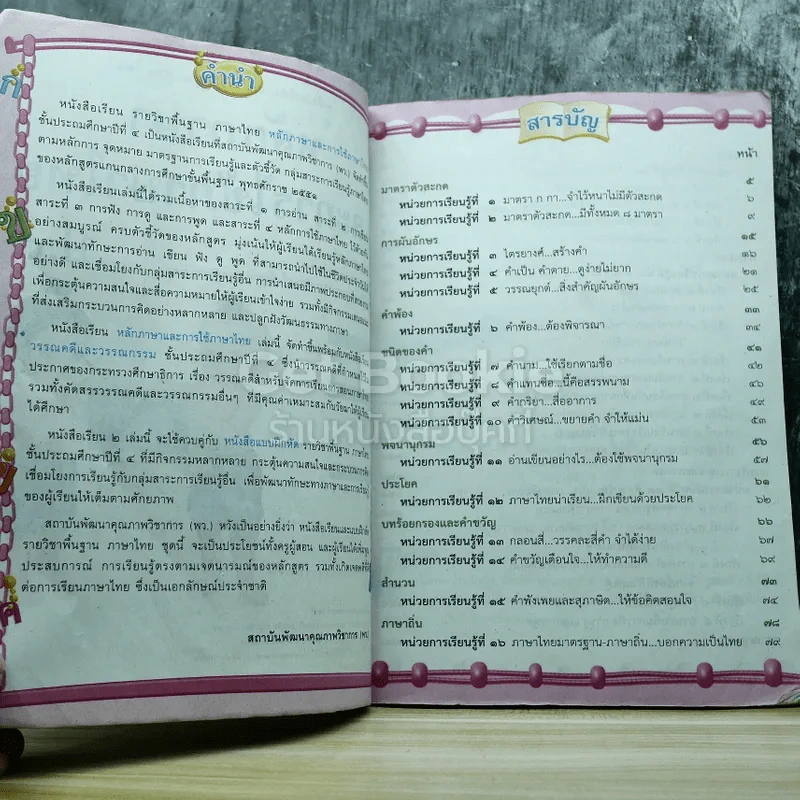 คำนำ
หนังสือเรียน รายวิชาพื้นฐาน ภาษาไทย หลักภาษาและการใช้ภาษาไทย
ชั้นประถมศึกษาปีที่ ๔ เป็นหนังสือเรียนที่สถาบันพัฒนาคุณภาพวิชาการ (พว.) จัดทำขึ้น
ตามหลักการ จุดหมาย มาตรฐานการเรียนรู้และตัวชี้วัด กลุ่มสาระการเรียนรู้ภาษาไทย
ของหลักสูตรแกนกลางการศึกษาขั้นพื้นฐาน พุทธศักราช ๒๕๕๑
หนังสือเรียนเล่มนี้ได้รวมเนื้อหาของสาระที่ ๑ การอ่าน สาระที่ ๒ การเขียน
สาระที่ ๓ การฟัง การดู และการพูด และสาระที่ ๔ หลักการใช้ภาษาไทย ไว้ด้วยกัน
อย่างสมบูรณ์ ครบตัวชี้วัดของหลักสูตร มุ่งเน้นให้ผู้เรียนได้เรียนรู้หลักภาษาไทย
และพัฒนาทักษะการอ่าน เขียน ฟัง ดู พูด ที่สามารถนำไปใช้ในชีวิตประจำวันได้
อย่างดี และเชื่อมโยงกับกลุ่มสาระการเรียนรู้อื่น การนำเสนอมีภาพประกอบที่
เพื่อกระตุ้นความสนใจและสื่อความหมายให้ผู้เรียนเข้าใจง่าย รวมทั้งมีกิจกรรม
ที่ส่งเสริมกระบวนการคิดอย่างหลากหลาย และปลูกฝังวัฒนธรรมทางภาษา
หนังสือเรียน หลักภาษาและการใช้ภาษาไทย เล่มนี้ จัดทำขึ้นพร้อมกับหนังสือ
วรรณคดีและวรรณกรรม ชั้นประถมศึกษาปีที่ ๔ ซึ่งนำวรรณคดีที่กำหนดไว้ใน
ประกาศของกระทรวงศึกษาธิการ เรื่อง วรรณคดีสำหรับจัดการเรียนการสอนภาษาไทย
รวมทั้งคัดสรรวรรณคดีและวรรณกรรมอื่นๆ ที่มีคุณค่าเหมาะสมกับวัยมาให้ผู้เรียน
ได้ศึกษา
หนังสือเรียน ๒ เล่มนี้ จะใช้ควบคู่กับ หนังสือแบบฝึกหัด รายวิชาพื้นฐาน ภาษาไทย
ชั้นประถมศึกษาปีที่ ๔ ที่มีกิจกรรมหลากหลาย กระตุ้นความสนใจและกระบวนการคิด
เชื่อมโยงการเรียนรู้กับกลุ่มสาระการเรียนรู้อื่น เพื่อพัฒนาทักษะทางภาษาและการเรียนรู้
ของผู้เรียนให้เต็มตามศักยภาพ
สถาบันพัฒนาคุณภาพวิชาการ (พว.) หวังเป็นอย่างยิ่งว่า หนังสือเรียนและแบบฝึกหัด
รายวิชาพื้นฐาน ภาษาไทย ชุดนี้ จะเป็นประโยชน์ทั้งครูผู้สอน และผู้เรียนได้เพิ่มพูน
ประสบการณ์ การเรียนรู้ตรงตามเจตนารมณ์ของหลักสูตร รวมทั้งเกิดเจตคติที่ดี
ต่อการเรียนภาษาไทย ซึ่งเป็นเอกลักษณ์ประจำชาติ
สถาบันพัฒนาคุณภาพวิชาการ (พว.)
สารบัญ
หน้า
มาตราตัวสะกด ๕
หน่วยการเรียนรู้ที่ ๑ มาตรา ก กา...จำไว้หนาไม่มีตัวสะกด ๖
หน่วยการเรียนรู้ที่ ๒ มาตราตัวสะกด...มีทั้งหมด ๘ มาตรา ๙
การผันอักษร ๑๕
หน่วยการเรียนรู้ที่ ๓ ไตรยางศ์...สร้างคำ ๑๖
หน่วยการเรียนรู้ที่ ๔ คำเป็น คำตาย...ดูง่ายไม่ยาก ๒๑
หน่วยการเรียนรู้ที่ ๕ วรรณยุกต์...สิ่งสำคัญผันอักษร ๒๕
คำพ้อง ๓๓
หน่วยการเรียนรู้ที่ ๖ คำพ้อง...ต้องพิจารณา ๓๔
ชนิดของคำ ๔๑
หน่วยการเรียนรู้ที่ ๗ คำนาม...ใช้เรียกตามชื่อ ๔๒
หน่วยการเรียนรู้ที่ ๘ คำแทนชื่อ...นี้คือสรรพนาม ๔๖
หน่วยการเรียนรู้ที่ ๙ คำกริยา...สื่ออาการ ๔๙
หน่วยการเรียนรู้ที่ ๑๐ คำวิเศษณ์...ขยายคำ จำให้แม่น ๕๓
พจนานุกรม ๕๖
หน่วยการเรียนรู้ที่ ๑๑ อ่านเขียนอย่างไร...ต้องใช้พจนานุกรม ๕๗
ประโยค ๖๑
หน่วยการเรียนรู้ที่ ๑๒ ภาษาไทยน่าเรียน...ฝึกเขียนด้วยประโยค ๖๒
บทร้อยกรองและคำขวัญ ๖๖
หน่วยการเรียนรู้ที่ ๑๓ กลอนสี่...วรรคละสี่คำ จำได้ง่าย ๖๗
หน่วยการเรียนรู้ที่ ๑๔ คำขวัญเตือนใจ...ให้ทำความดี ๖๙
สำนวน ๗๓
หน่วยการเรียนรู้ที่ ๑๕ คำพังเพยและสุภาษิต...ให้ข้อคิดสอนใจ ๗๔
ภาษาถิ่น ๗๘
หน่วยการเรียนรู้ที่ ๑๖ ภาษาไทยมาตรฐาน-ภาษาถิ่น...บอกความเป็นไทย ๗๙